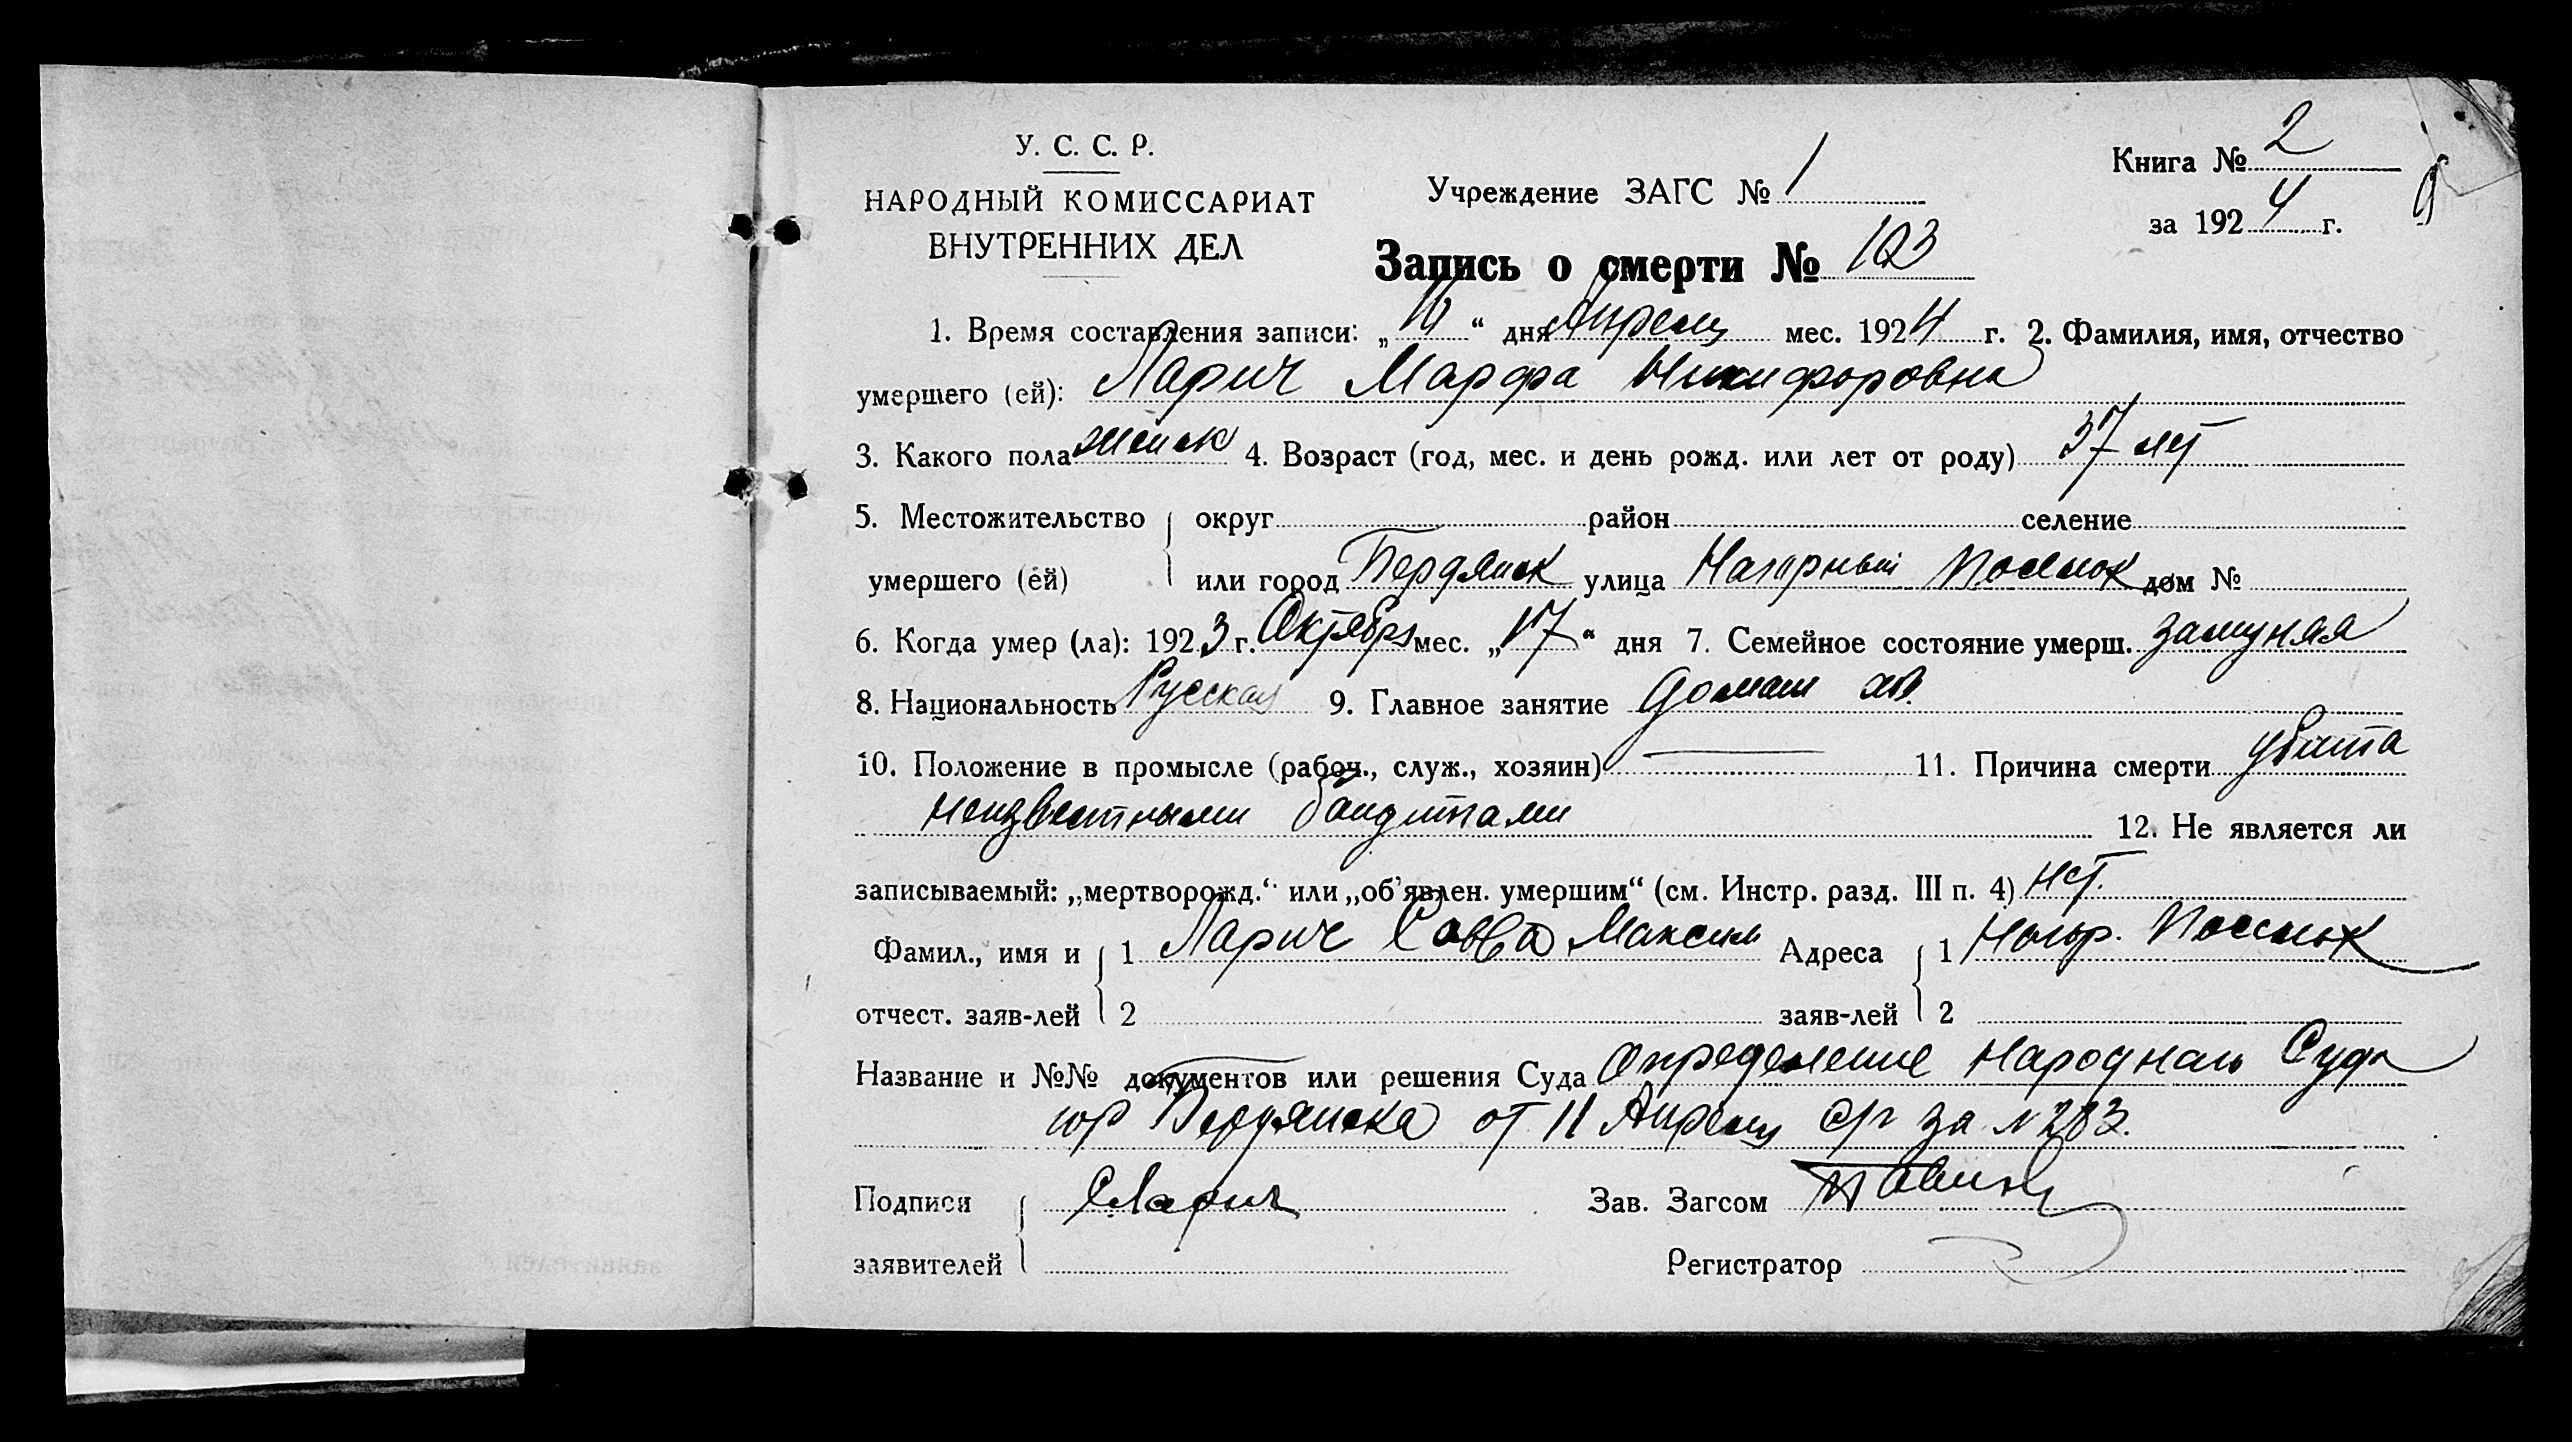 У. С. С. Р.
НАРОДНЫЙ КОМИССАРИАТ
ВНУТРЕННИХ ДЕЛ
Учреждение ЗАГС № 1
Книга № 2
за 1924 г.
Запись о смерти № 123
1. Время составления записи: „ “ дня Апреля мес. 1924 г. 2. Фамилия, имя, отчество
умершего (ей): Ларич Марфа Никифоровна
3. Какого пола женск 4. Возраст (год, мес. и день рожд. или лет от роду) 37 лет
5. Местожительство округ район селение
умершего (ей) или город Бердянск улица Нагорный Поселок дом №
6. Когда умер (ла): 1923 г. Октября мес. „17“ дня 7. Семейное состояние умерш. замужняя
8. Национальность Русская 9. Главное занятие домаш хоз.
10. Положение в промысле (рабоч., служ., хозяин) — 11. Причина смерти убита
неизвестными бандитами 12. Не является ли
записываемый: „мертворожд.“ или „об'явлен. умершим“ (см. Инстр. разд. III п. 4) нет.
Фамил., имя и 1 Ларич Савва Максим Адреса 1 Нагор. Поселок
отчест. заяв-лей 2 заяв-лей 2
Название и №№ документов или решения Суда Определение Народнаго Суда
гор Бердянска от 11 Апреля с/г за № 283.
Подписи СЛарич Зав. Загсом
заявителей Регистратор